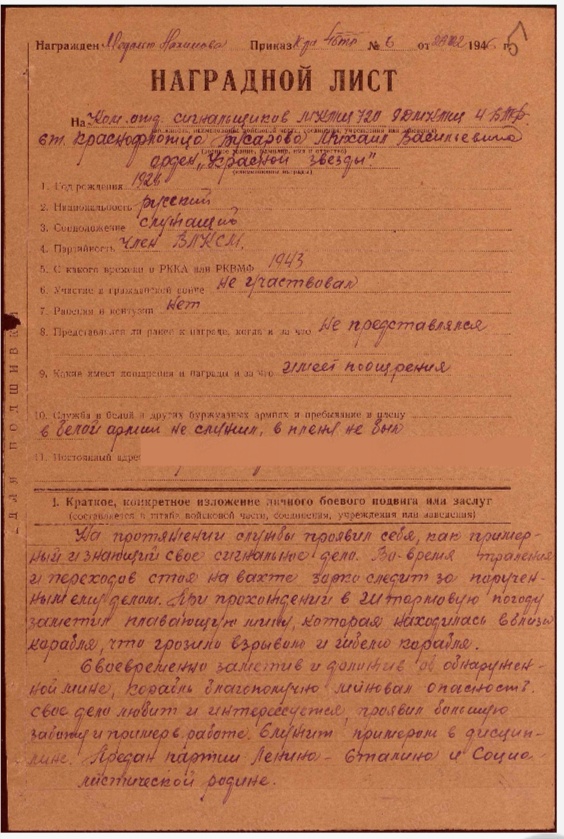 Награжден Медалью Нахимова Приказ № 6 от 1946 г.
НАГРАДНОЙ ЛИСТ
На Ком. отд. сигнальщиков МКТЩ 720 9ДМКТЩ 4 БТР.
ст. краснофлотца Михаил Васильевича
орден „Красной звезды"
1. Год рождения 1926
2. Национальность русский
3. Соцположение служащий
4. Партийность Член ВЛКСМ.
5. С какого времени в РККА или РКВМФ 1943
6. Участие в гражданской войне не участвовал
7. Ранения и контузии Нет
8. Представлялся ли ранее к награде, когда и за что Не представлялся
9. Какие имеет поощрения и награды и за что имеет поощрения
10. Служба в белой и других буржуазных армиях и пребывание в плену
в белой армии не служил, в плену не был
11. Постоянный адрес
для подшивки
1. Краткое, конкретное изложение личного боевого подвига или заслуг
(составляется в штабе войсковой части, соединения, учреждения или заведения)
На протяжении службы проявил себя, как пример-
ный и знающий свое сигнальное дело. Во время траления
и переходов стоя на вахте зорко следит за поручен-
ным ему делом. При прохождении в штормовую погоду
заметил плавающую мину, которая находилась вблизи
корабля, что грозило взрывом и гибелью корабля.
Своевременно заметив и доложив об обнаружен-
ной мине, корабль благополучно миновал опасность.
Свое дело любит и интересуется, проявил большую
заботу и пример в работе. Служит примером в дисцип-
лине. Предан партии Ленина-Сталина и Социа-
листической родине.